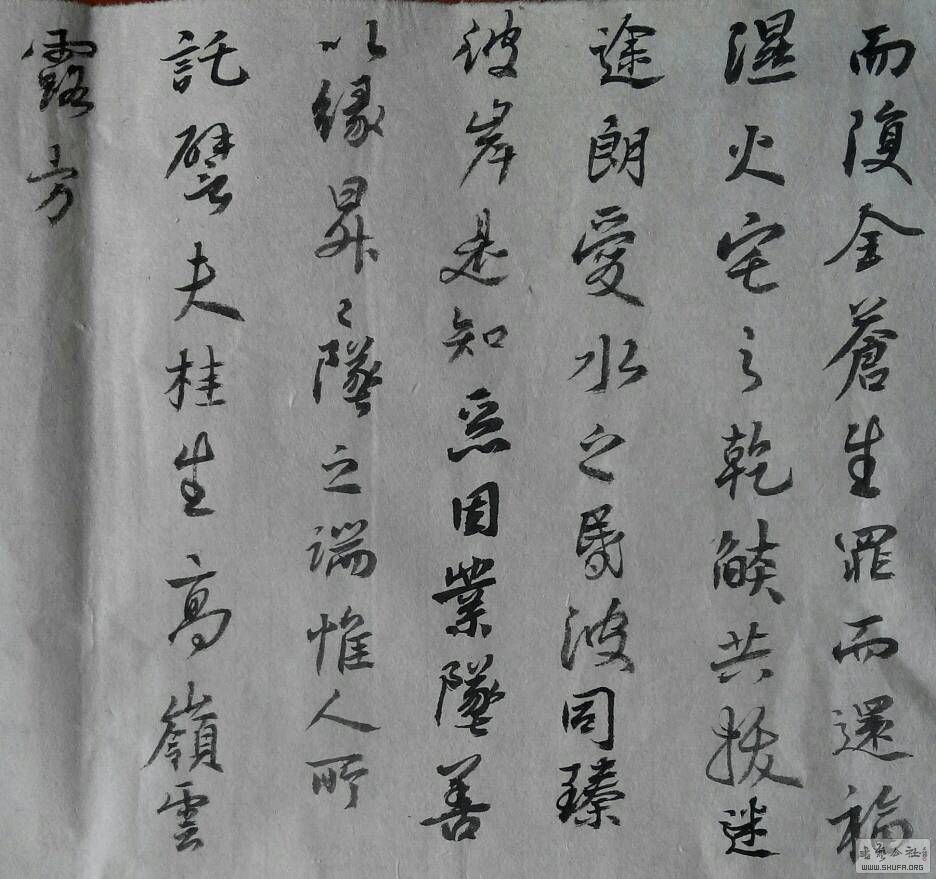 而復全蒼生罪而還福
濕火宅之乾燄共拔迷
途朗愛水之昏波同臻
彼岸是知惡因業墜善
以緣昇〻墜之端惟人所
託譬夫桂生高嶺雲
露方
WWW.SHUFA.ORG